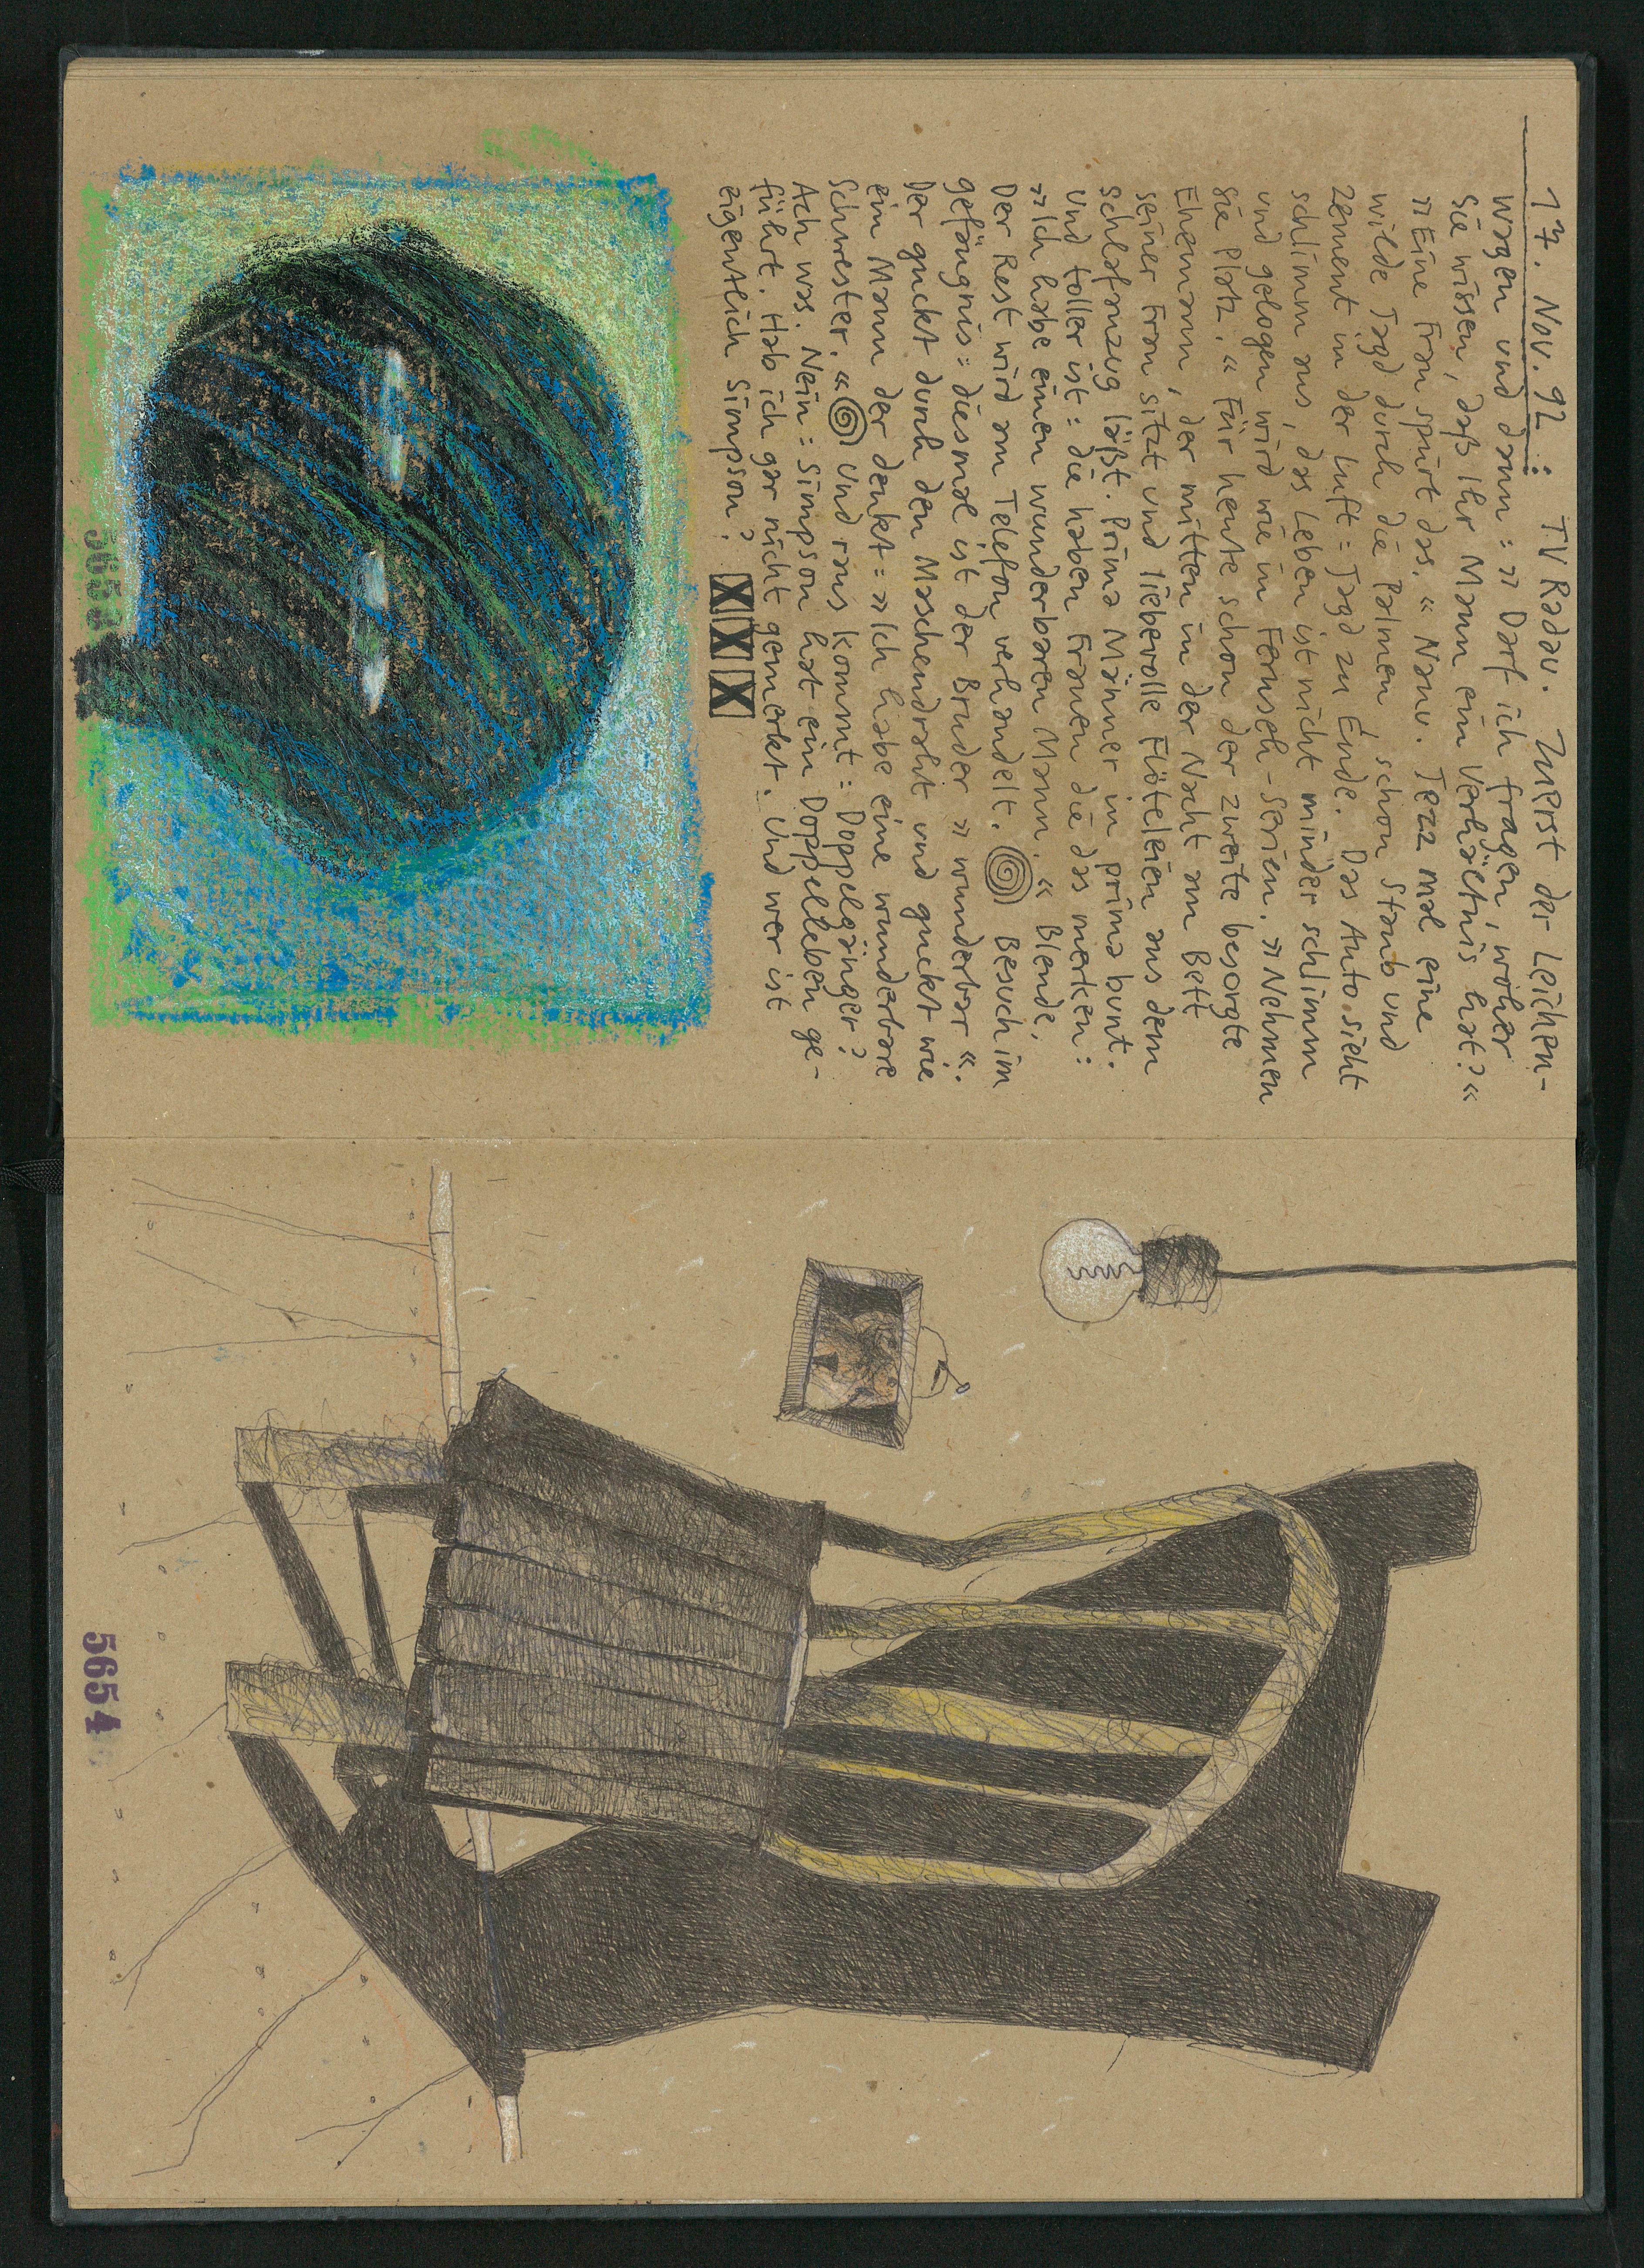 17. Nov. 92 : TV Radau. Zuerst der Leichen-
wagen und dann: »Darf ich fragen, woher
Sie wissen, daß Ihr Mann ein Verhältnis hat?«
»Eine Frau spürt das.« Nanu. Jezz mal eine
wilde Jagd durch die Palmen, schon Staub und
Zement in der Luft: Jagd zu Ende. Das Auto sieht
schlimm aus, das Leben ist nicht minder schlimm
und gelogen wird wie in Fernseh-Serien. »Nehmen
Sie Platz.« Für heute schon der zweite besorgte
Ehemann, der mitten in der Nacht am Bett
seiner Frau sitzt und liebevolle Flöteleien aus dem
Schlafanzug läßt. Prima Männer in prima bunt.
Und toller ist: die haben Frauen die das merken:
»Ich habe einen wunderbaren Mann.« Blende.
Der Rest wird am Telefon verhandelt. Besuch im
gefängnis: diesmal ist der Bruder »wunderbar«.
Der guckt durch den Maschendraht und guckt wie
ein Mann der denkt: »Ich habe eine wunderbare
Schwester.« Und raus kommt: Doppelgänger?
Ach was. Nein: Simpson hat ein Doppelleben ge-
führt. Hab ich gar nicht gemerkt. Und wer ist
eigentlich Simpson? XXX
5653
5654